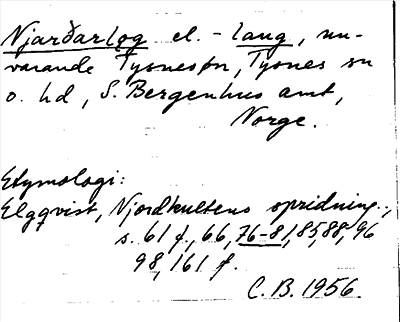 Njarðarlǫg el. -laug, nu-
varande Tysnesøn, Tysnes sn
o. hd, S. Bergenhus amt,
Norge.
Etymologi:
Elgqvist, Njordkultens spridning.,
s. 61 f., 66, 76-81, 85, 88, 96
98, 161 f.
C. B. 1956.